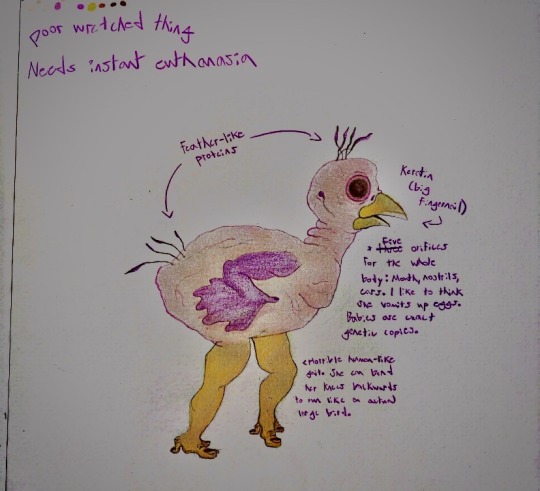 Poor wretched thing
Needs instant euthanasia
Feather-like
proteins
Keratin
(big
fingernail)
* Five
three orifices
for the whole
body: Mouth, nostrils,
ears. I like to think
she vomits up eggs.
Babies are exact
genetic copies.
Horrible human-like
gait. She can bend
her knees backwards
to run like an actual
large bird.